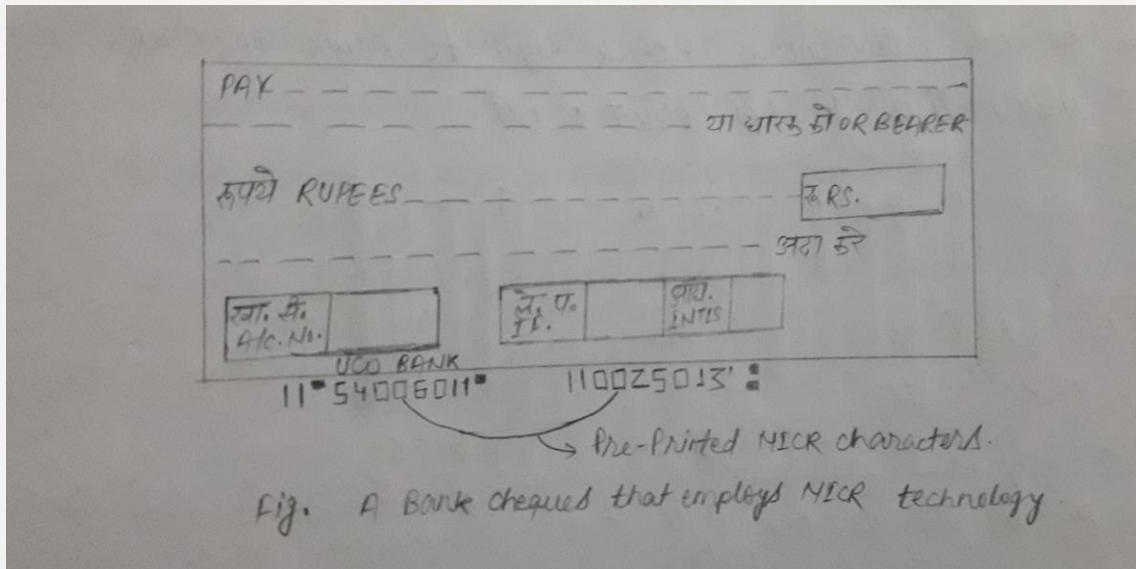 PAY
या धारक को OR BEARER
रूपये RUPEES
रु RS.
अदा करे
खा. सं.
A/C. No.
ले. प.
INTLS
UCO BANK
11"54006011" 110025013':
Pre-Printed MICR characters.
Fig. A Bank cheques that employs MICR technology